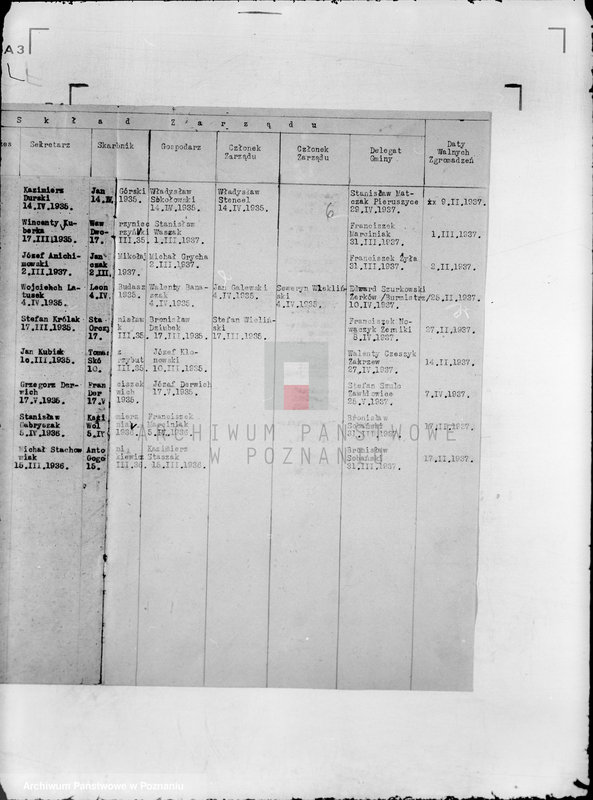 A 3
Skład Zarządu
Sekretarz Skarbnik Gospodarz Członek Zarządu Członek Zarządu Delegat Gminy Daty Walnych Zgromadzeń
Kazimierz Jan Górski Władysław Władysław Stanisław Mat-
Durski 14.IV. 1935. Sokołowski Stencel czak Pieruszyce 9.II.1937.
14.IV.1935. 14.IV.1935. 14.IV.1935. 29.IV.1937.
6
Wincenty Ku- Waw rzyniec Stanisław Franciszek
berka Dwo- Waszak Marciniak 1.III.1937.
17.III.1935. 17. III.35. 1.III.1937. 31.III.1937.
Józef Anichi- Jan Mikołaj Michał Grycha Franciszek Żyła
mowski czak 2.III.1937. 31.III.1937. 2.II.1937.
2.III.1937. 2.III. 1937.
Wojciech La- Leon Budasz Walenty Bana- Jan Galewski Seweryn Wieliń- Edward Szurkowski
tuszek 4.IV. 1935. szak 4.IV.1935. ski Żerków /Burmistrz/ 25.II.1937.
4.IV.1935. 4.IV.1935. 4.IV.1935. 10.IV.1937.
Stefan Królak Sta nisław Bronisław Stefan Wieliń- Franciszek No-
17.III.1935. k Dziubek ski waczyk Żerniki 27.II.1937.
17. III.35. 17.III.1935. 17.III.1935. 8.IV.1937.
Jan Kubiak Tomas z Józef Klo- Walenty Czeszyk
10.III.1935. Skó nowski Zakrzew 14.II.1937.
10. III.35. 10.III.1935. 27.IV.1937.
Grzegorz Der- Fran ciszek Józef Derwich Stefan Szulc
wich Der wich 17.V.1935. Zawidowice 7.IV.1937.
17.V.1935. 17.V 1935. 25.V.1937.
Stanisław Kazi mierz Franciszek Bronisław
Gabryszak Wol niak Marciniak Sobański 17.II.1937.
5.IV.1936. 5.IV 1936. 5.IV.1936. 31.III.1937.
Michał Stachow Anto ni Kazimierz Bronisław
wiak Gogo kiewicz Staszak Sobański 17.II.1937.
15.III.1936. 15. III.36. 15.III.1936. 31.III.1937.
ARCHIWUM PAŃSTWOWE
W POZNANIU
Archiwum Państwowe w Poznaniu